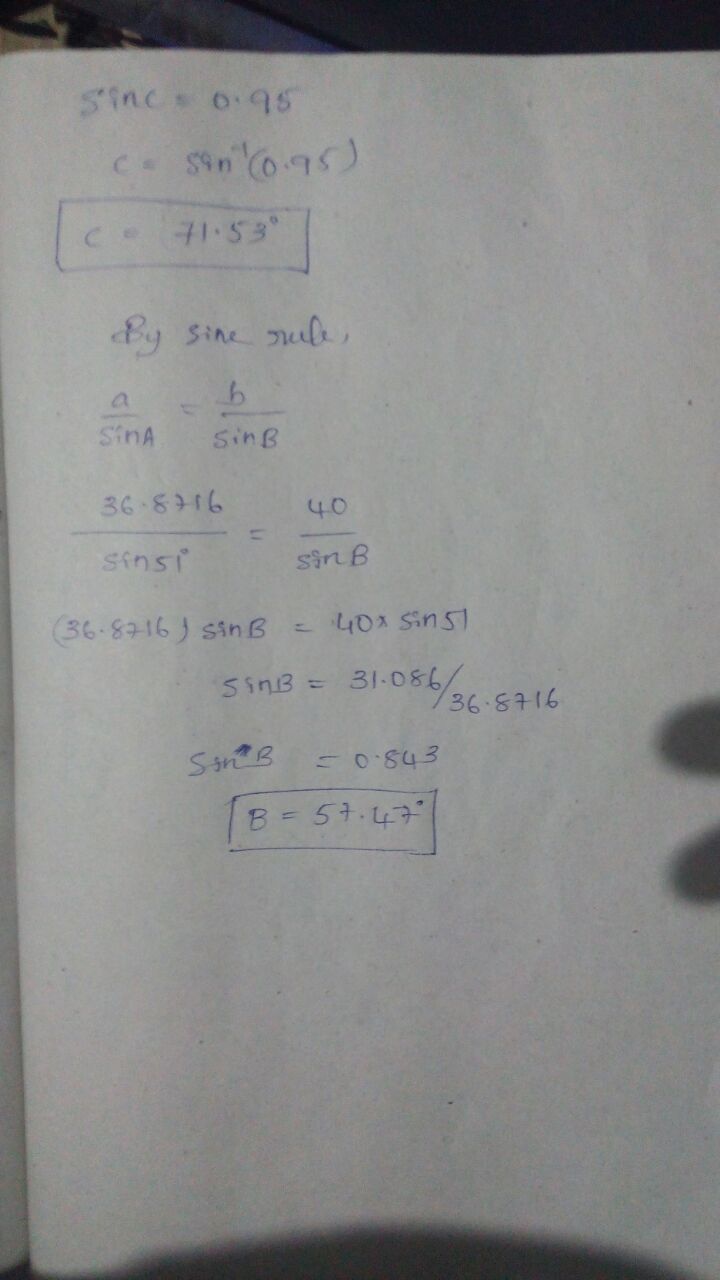 sinc = 0.95
c = sin⁻¹(0.95)
c = 71.53°
By sine rule,
a/sinA = b/sinB
36.8716/sin51° = 40/sinB
(36.8716) sinB = 40x sin51
sinB = 31.086/36.8716
sin B = 0.843
B = 57.47°